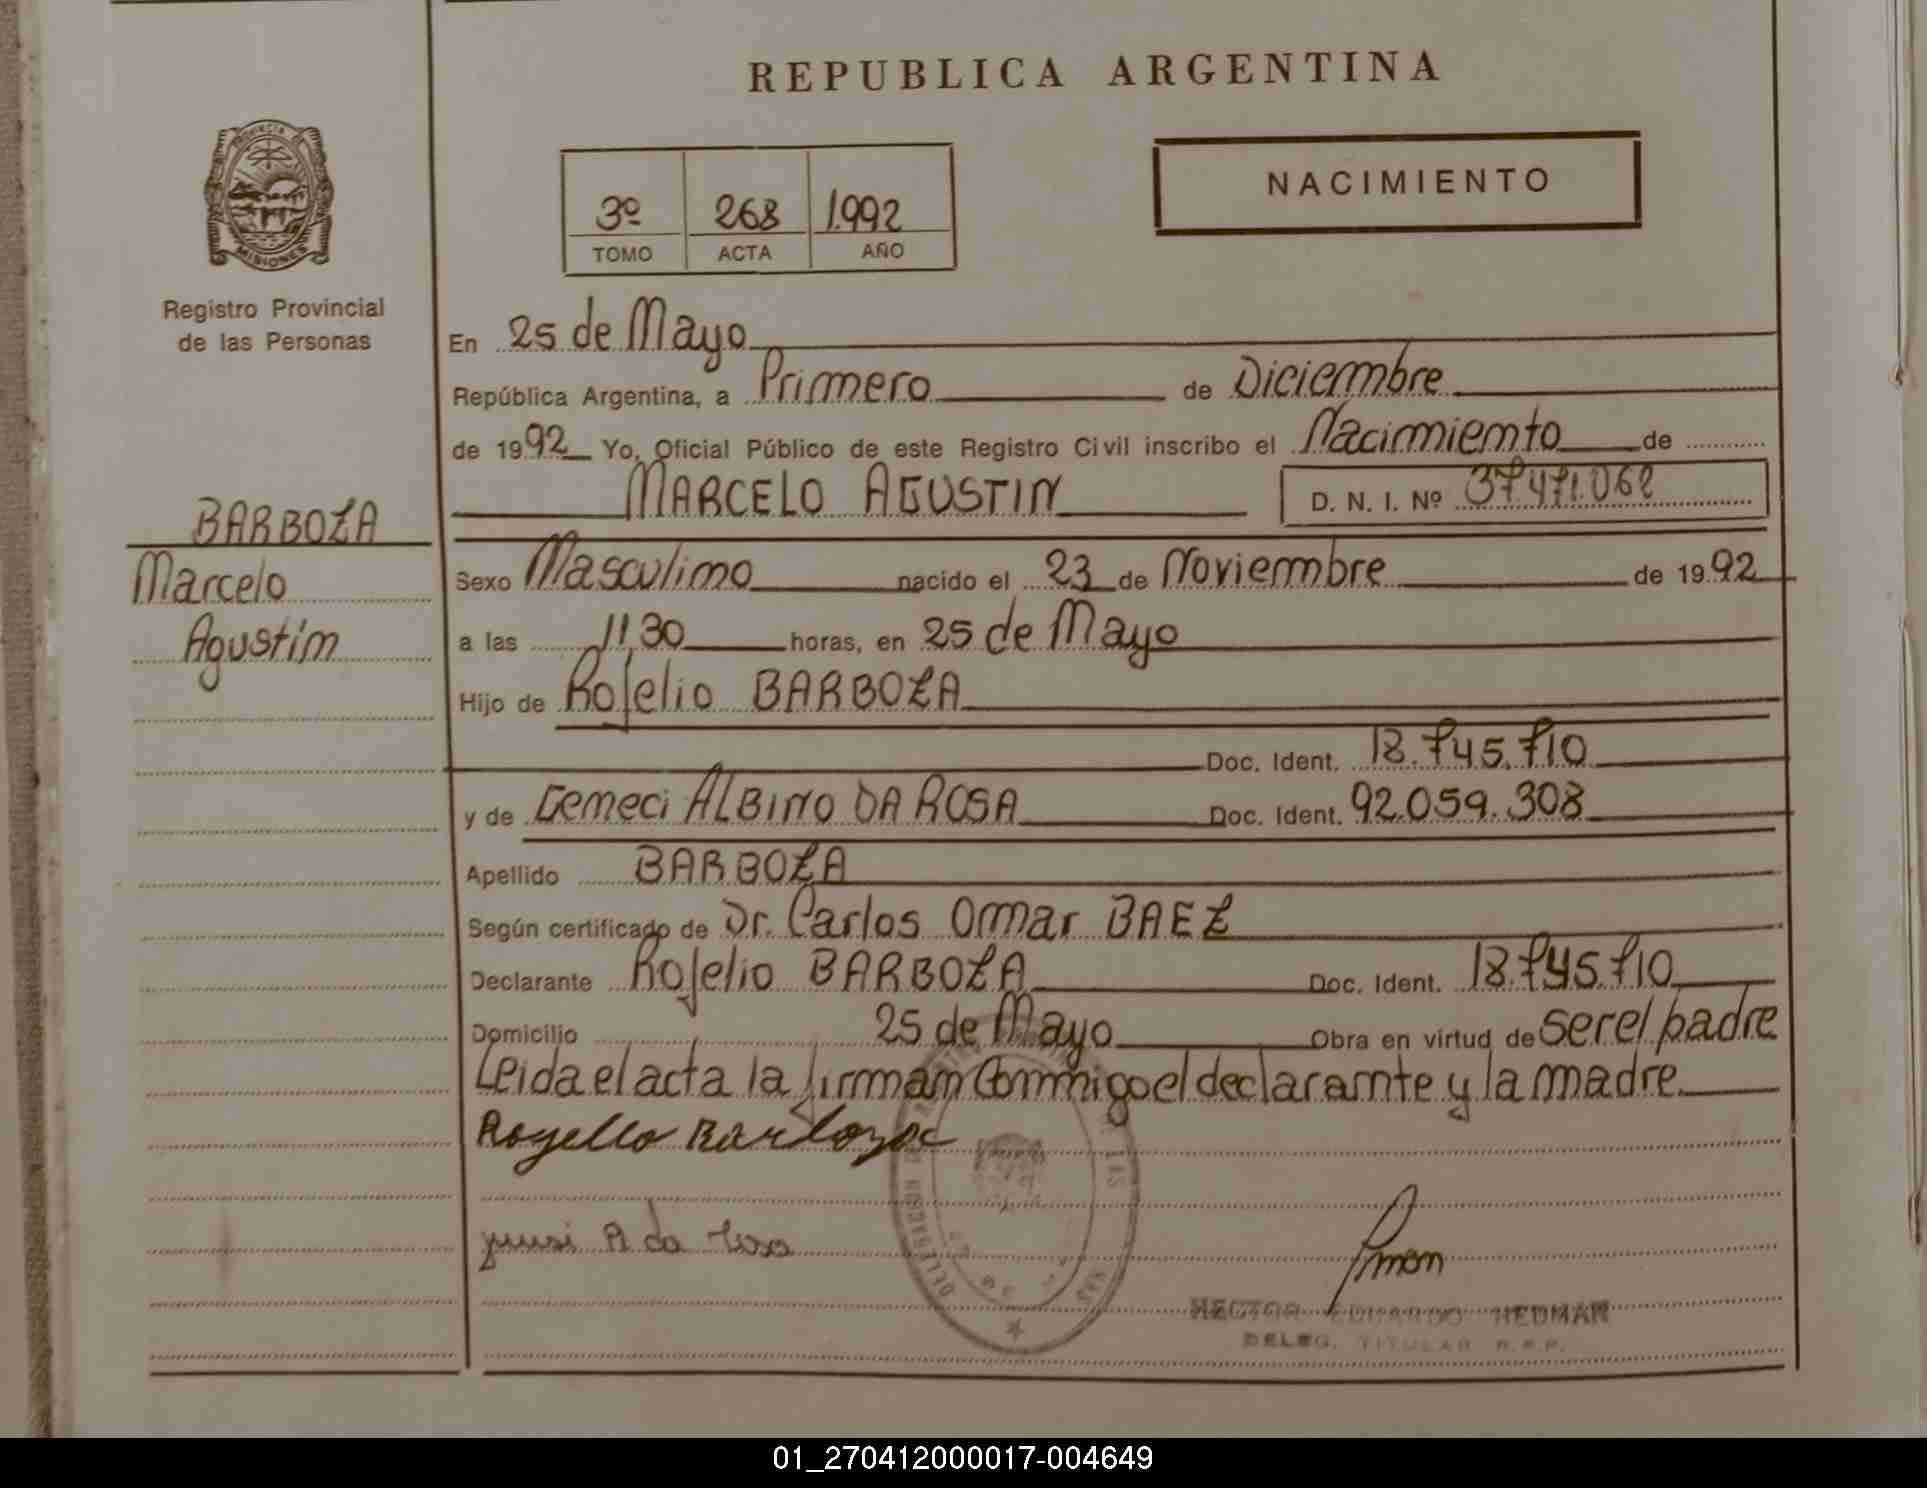 REPUBLICA ARGENTINA
NACIMIENTO
3º 268 1992
TOMO ACTA AÑO
PROVINCIA DE
MISIONES
Registro Provincial
de las Personas
BARBOZA
Marcelo
Agustin
En 25 de Mayo
República Argentina, a Primero de Diciembre
de 1992 Yo, Oficial Público de este Registro Civil inscribo el Nacimiento de
MARCELO AGUSTIN D. N. I. Nº 37.471.062
Sexo Masculino nacido el 23 de Noviembre de 1992
a las 11,30 horas, en 25 de Mayo
Hijo de Rojelio BARBOZA
Doc. Ident. 18.745.710
y de Gemeci ALBINO DA ROSA Doc. Ident. 92.059.308
Apellido BARBOZA
Según certificado de Dr. Carlos Omar BAEZ
Declarante Rojelio BARBOZA Doc. Ident. 18.745.710
Domicilio 25 de Mayo Obra en virtud de ser el padre
Leida el acta la firman Conmigo el declarante y la madre
Rogelio Barboza
A da Rosa
HECTOR EDUARDO HEDMAN
DELEG. TITULAR R.P.P.
01_270412000017-004649